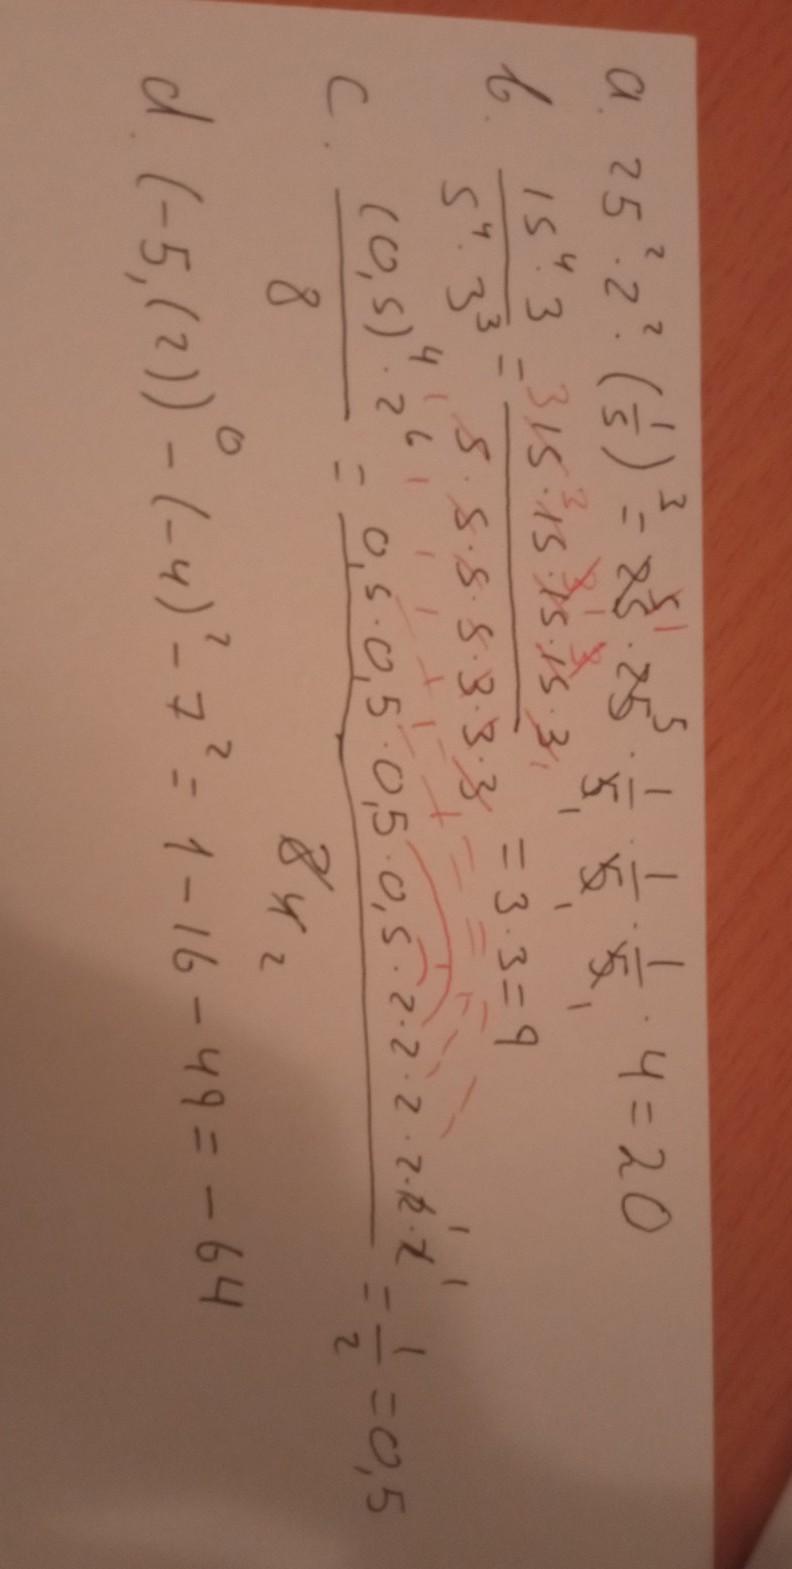 a. 25² · 2² · (1/5)³ = 25 · 25 · 1/5 · 1/5 · 1/5 · 4 = 20
b. 15⁴ · 3 / 5⁴ · 3³ = 15 · 15 · 15 · 15 · 3 / 5 · 5 · 5 · 5 · 3 · 3 · 3 = 3 · 3 = 9
c. (0,5)⁴ · 2⁶ / 8 = 0,5 · 0,5 · 0,5 · 0,5 · 2 · 2 · 2 · 2 · 2 · 2 / 8 4 2 = 1/2 = 0,5
d. (-5,(2))⁰ - (-4)² - 7² = 1 - 16 - 49 = - 64